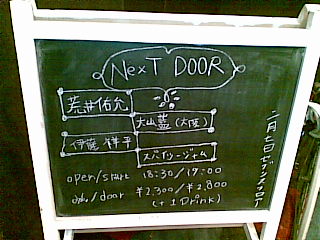 NexT DOOR
荒井佑允
大山藍（大阪）
伊藤祥平
スパイシージャム
open/start 18:30/19:00
adv./door ¥2,300/¥2,800
(+1Drink)
二月七日